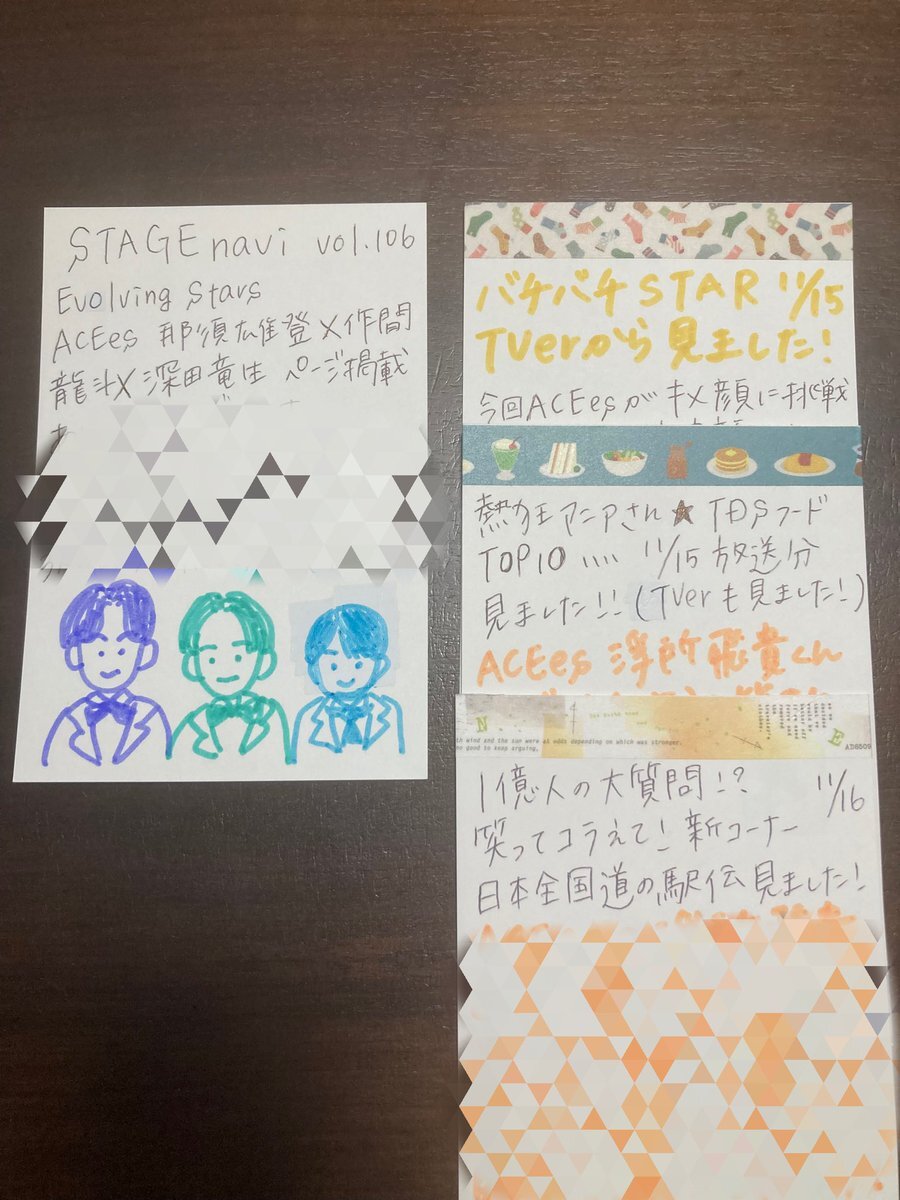 STAGEnavi vol.106
Evolving Stars
ACEes 那須雄登×作間
龍斗×深田竜生 ページ掲載
バチバチSTAR 11/15
TVerから見ました!
今回ACEesがキメ顔に挑戦
熱狂マニアさん★TDSフード
TOP10 11/15放送分
見ました!!(TVerも見ました!)
ACEes 浮所飛貴くん
N
E
th wind and the sun were at odds depending on which was stronger.
no good to keep arguing.
AD8509
1億人の大質問!? 11/16
笑ってコラえて!新コーナー
日本全国道の駅伝見ました!